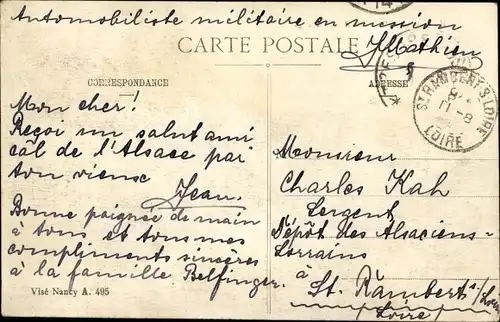 Automobiliste militaire en mission
CARTE POSTALE
J Mathieu
CORRESPONDANCE
ADRESSE
Mon cher!
Reçoi un salut ami
cal de l'Alsace pai
ton viens
Jean.
Bonne poignée de main
à tous et tous mes
compliments sincères
à la famille Belfinger.
Visé Nancy A. 495
Monsieur
Charles Kah
Sergent
Dépôt des Alsaciens-
Lorrains
à
St. Rambert s/Loire
Loire
114
ST RAMBERT S LOIRE
11-8
LOIRE